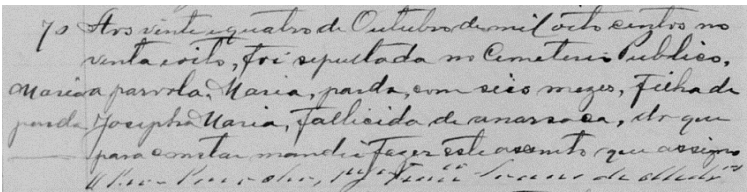 70 Aos vinte e quatro de Outubro de mil oito centos no
venta e oito, foi sepultada no Cemeterio Publico,
Maria a parvola, Maria, parda, com seis mezes, filha de
parda Josepha Maria, fallicida de anarsaca, do que
para constar mandei fazer este assento que assigno